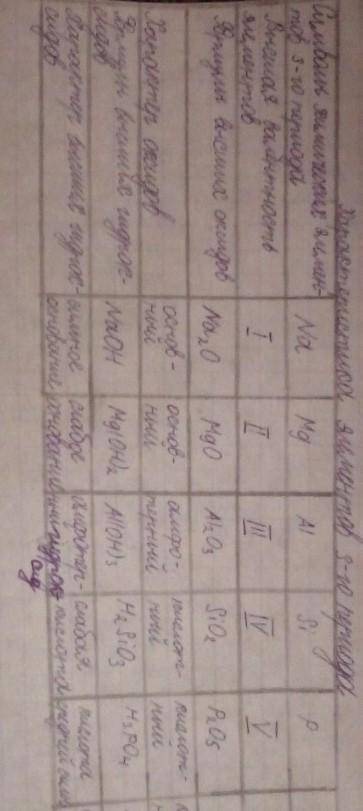 Характеристика элементов 3-го периода
Символы химических элемен-
тов 3-го периода
Na
Mg
Al
Si
P
Высшая валентность
элементов
I
II
III
IV
V
Формулы высших оксидов
Na2O
MgO
Al2O3
SiO2
P2O5
Характер оксидов
основ-
ный
основ-
ный
амфо-
терный
кислот-
ный
кислот-
ный
Формулы высших гидрок-
сидов
NaOH
Mg(OH)2
Al(OH)3
H2SiO3
H3PO4
Характер высших гидрок-
сидов
сильное
основание
слабое
основание
амфотер-
ный гидрок-
сид
слабая
кислота
кислота
средней силы